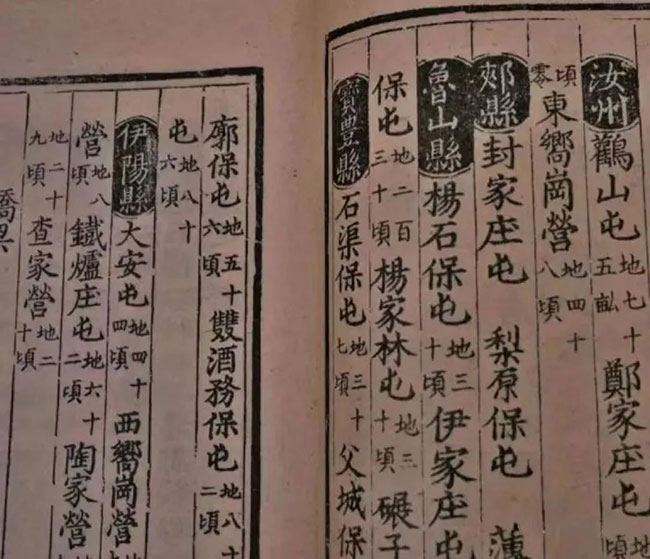 汝州鸛山屯地七十五畝鄭家庄屯
頃零東嚮崗營地四十八頃
郟縣封家庄屯梨原保屯
魯山縣楊石保屯地三十頃伊家庄屯
保屯地二百三十頃楊家林屯地三十頃碾子
寶豊縣石渠保屯地三十七頃父城保
廓保屯地五十六頃雙酒務保屯地八十二頃
屯地八十六頃
伊陽縣大安屯地四十四頃西嚮崗營
營地八頃鐵爐庄屯地六十二頃陶家營
地二十九頃查家營地二十頃